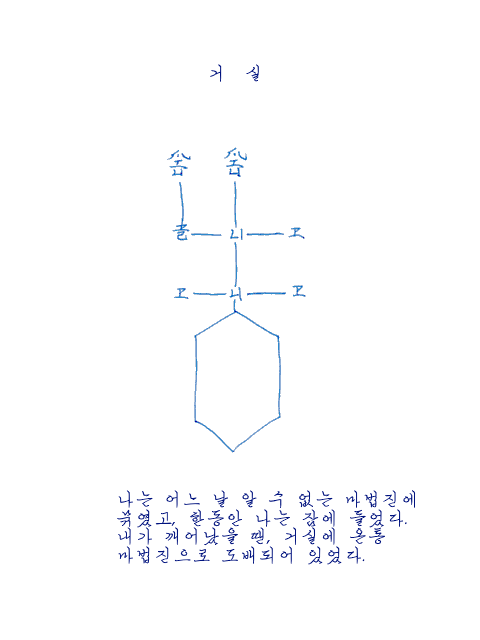 거 실
리 고
고 니 고
나는 어느 날 알 수 없는 마법진에
묶였고, 한동안 나는 잠에 들었다.
내가 깨어났을 땐, 거실에 온통
마법진으로 도배되어 있었다.